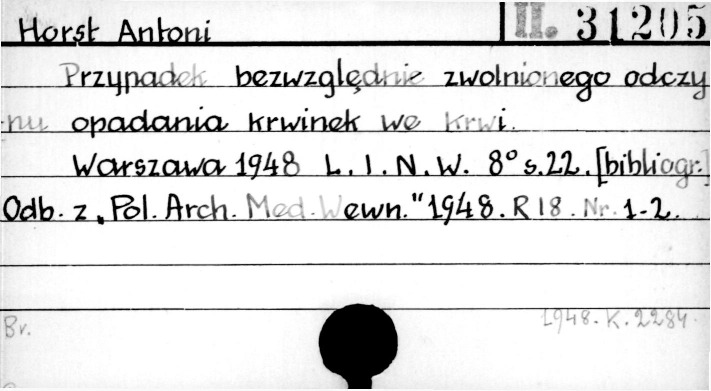 Horst Antoni II. 31205
Przypadek bezwzględnie zwolnionego odczy
nu opadania krwinek we krwi.
Warszawa 1948 L.I.N.W. 8° s.22. [bibliogr.]
Odb. z „Pol. Arch. Med. Wewn." 1948. R 18. Nr. 1-2.
Br. 1948. K. 2284.